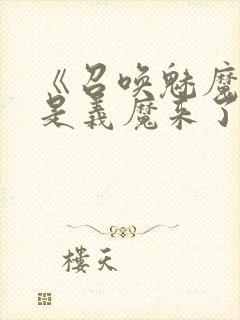 《召唤魅魔
是义魔来了
楼天